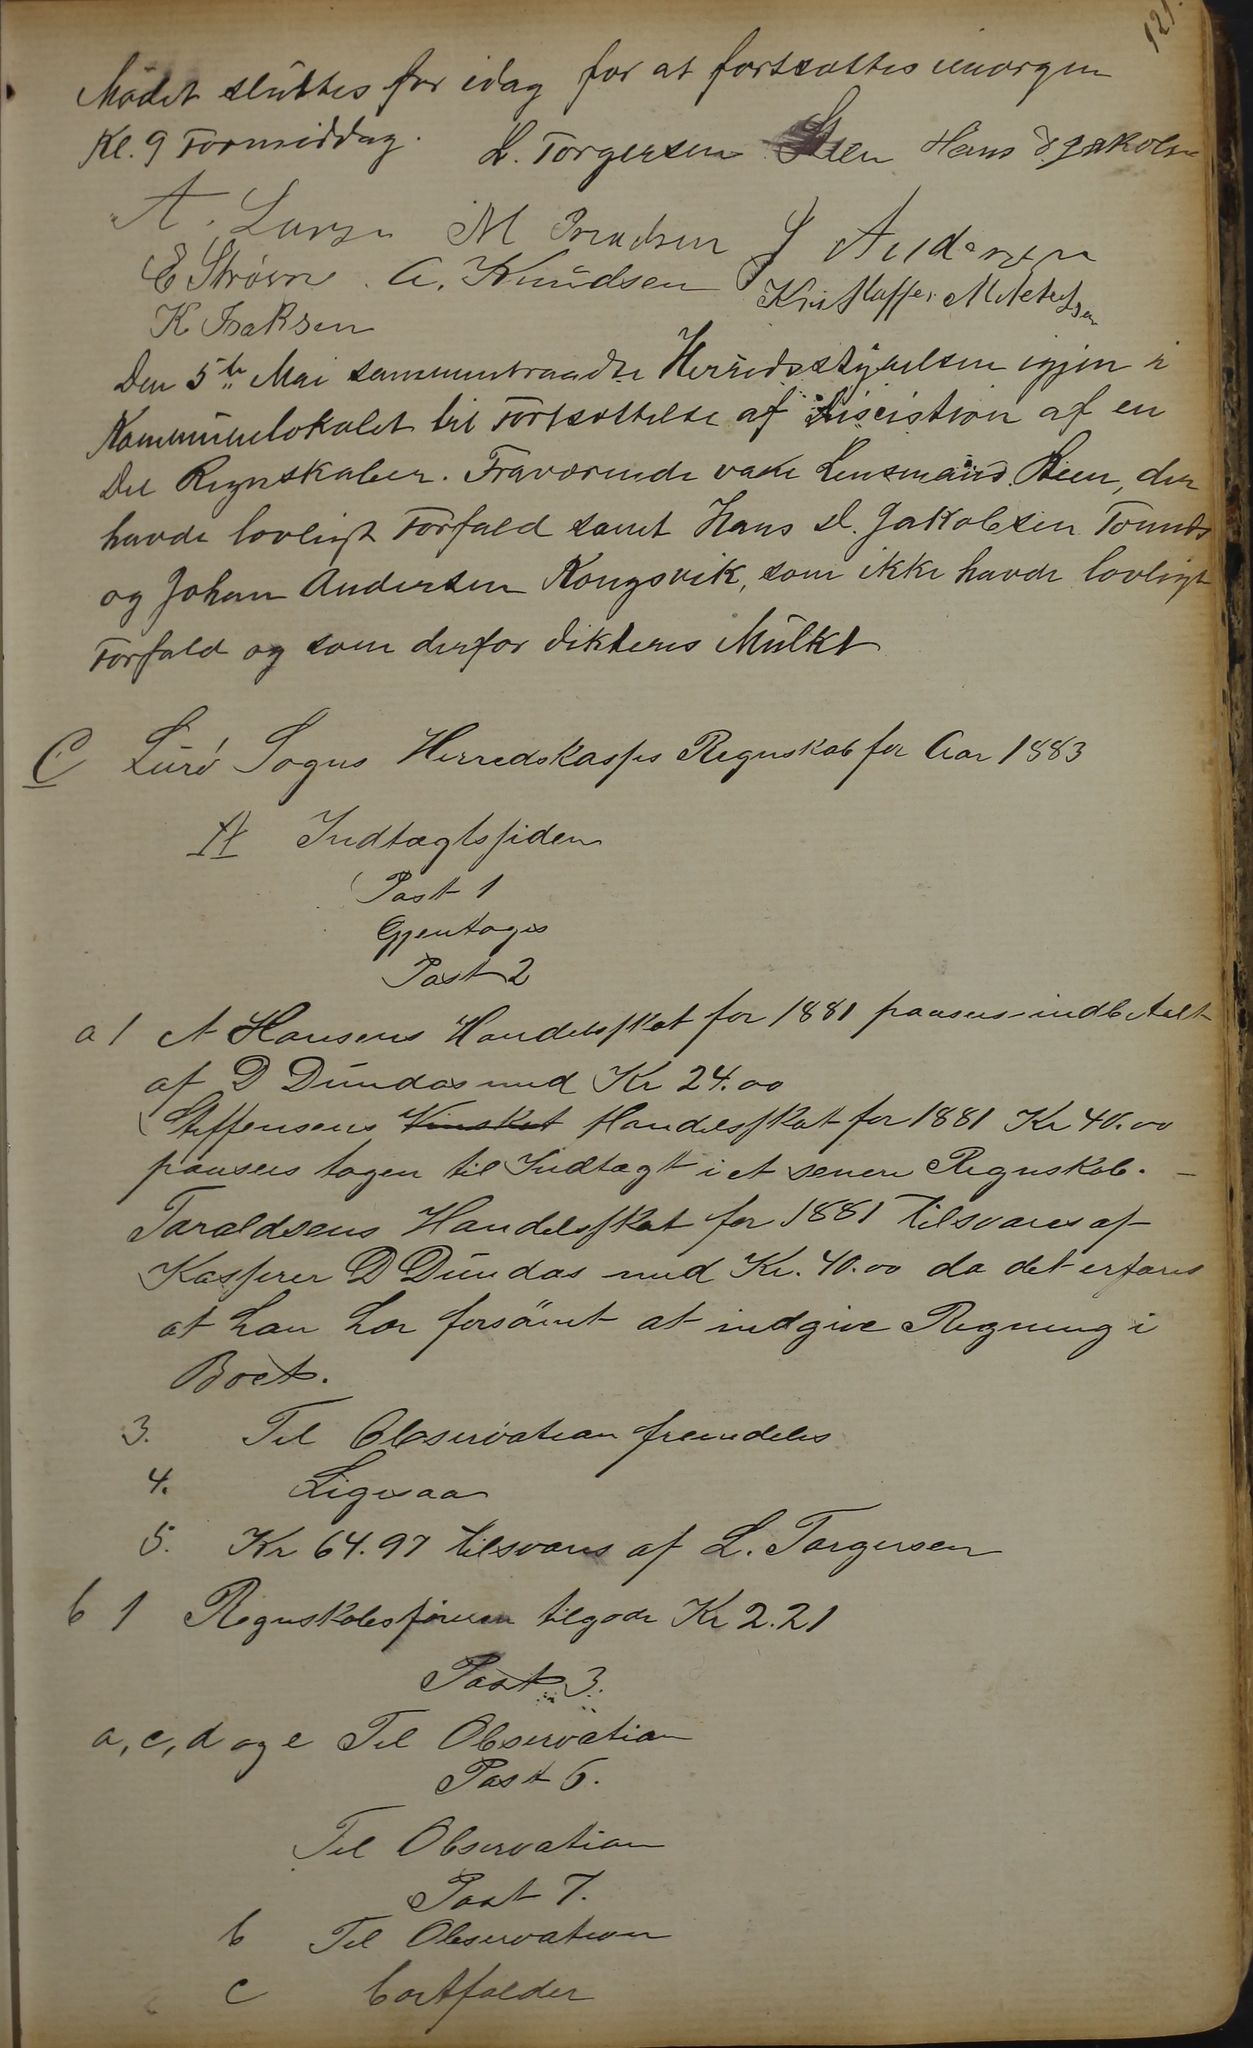 121.
Mødet sluttes for idag for at fortsættes imorgen
Kl. 9 Formiddag. L. Torgersen Steen Hans d. Jakobsen
A. Larsen M Iversen J Andersen
E Strøm. A. Knudsen Kristoffer Mikkelsen
K Isaksen
Den 5te Mai sammentraadte Herredsstyrelsen igjen i
Kommunelokalet til Fortsættelse af Discision af en
Del Regnskaber. Fraværende vare Lensmand Steen, der
havde lovligt Forfald samt Hans d. Jakobsen
og Johan Andersen Kongsvik, som ikke havde lovligt
Forfald og som derfor dikteres Mulkt
C Lurø Sogns Herredskasses Regnskab for Aar 1883
A Indtægtssiden
Post 1
Gjentages
Post 2
a 1 A Hansens Handelsskat for 1881 paasees indbetalt
af D Dundas med Kr 24.00
Steffensens Vinskat Handelsskat for 1881 Kr 40.00
paasees tagen til Indtægt i et senere Regnskab. –
Taraldsens Handelsskat for 1881 tilsvares af
Kasserer D Dundas med Kr. 40.00 da det erfares
at han har forsømt at indgive Regning i
Boet.
3. Til Observation fremdeles
4. Ligesaa
5. Kr 64.97 tilsvares af L. Torgersen
b 1 Regnskabsføreren tilgode Kr 2.21
Post 3.
a, c, d og e Til Observation
Post 6.
Til Observation
Post 7.
b Til Observation
c bortfalder